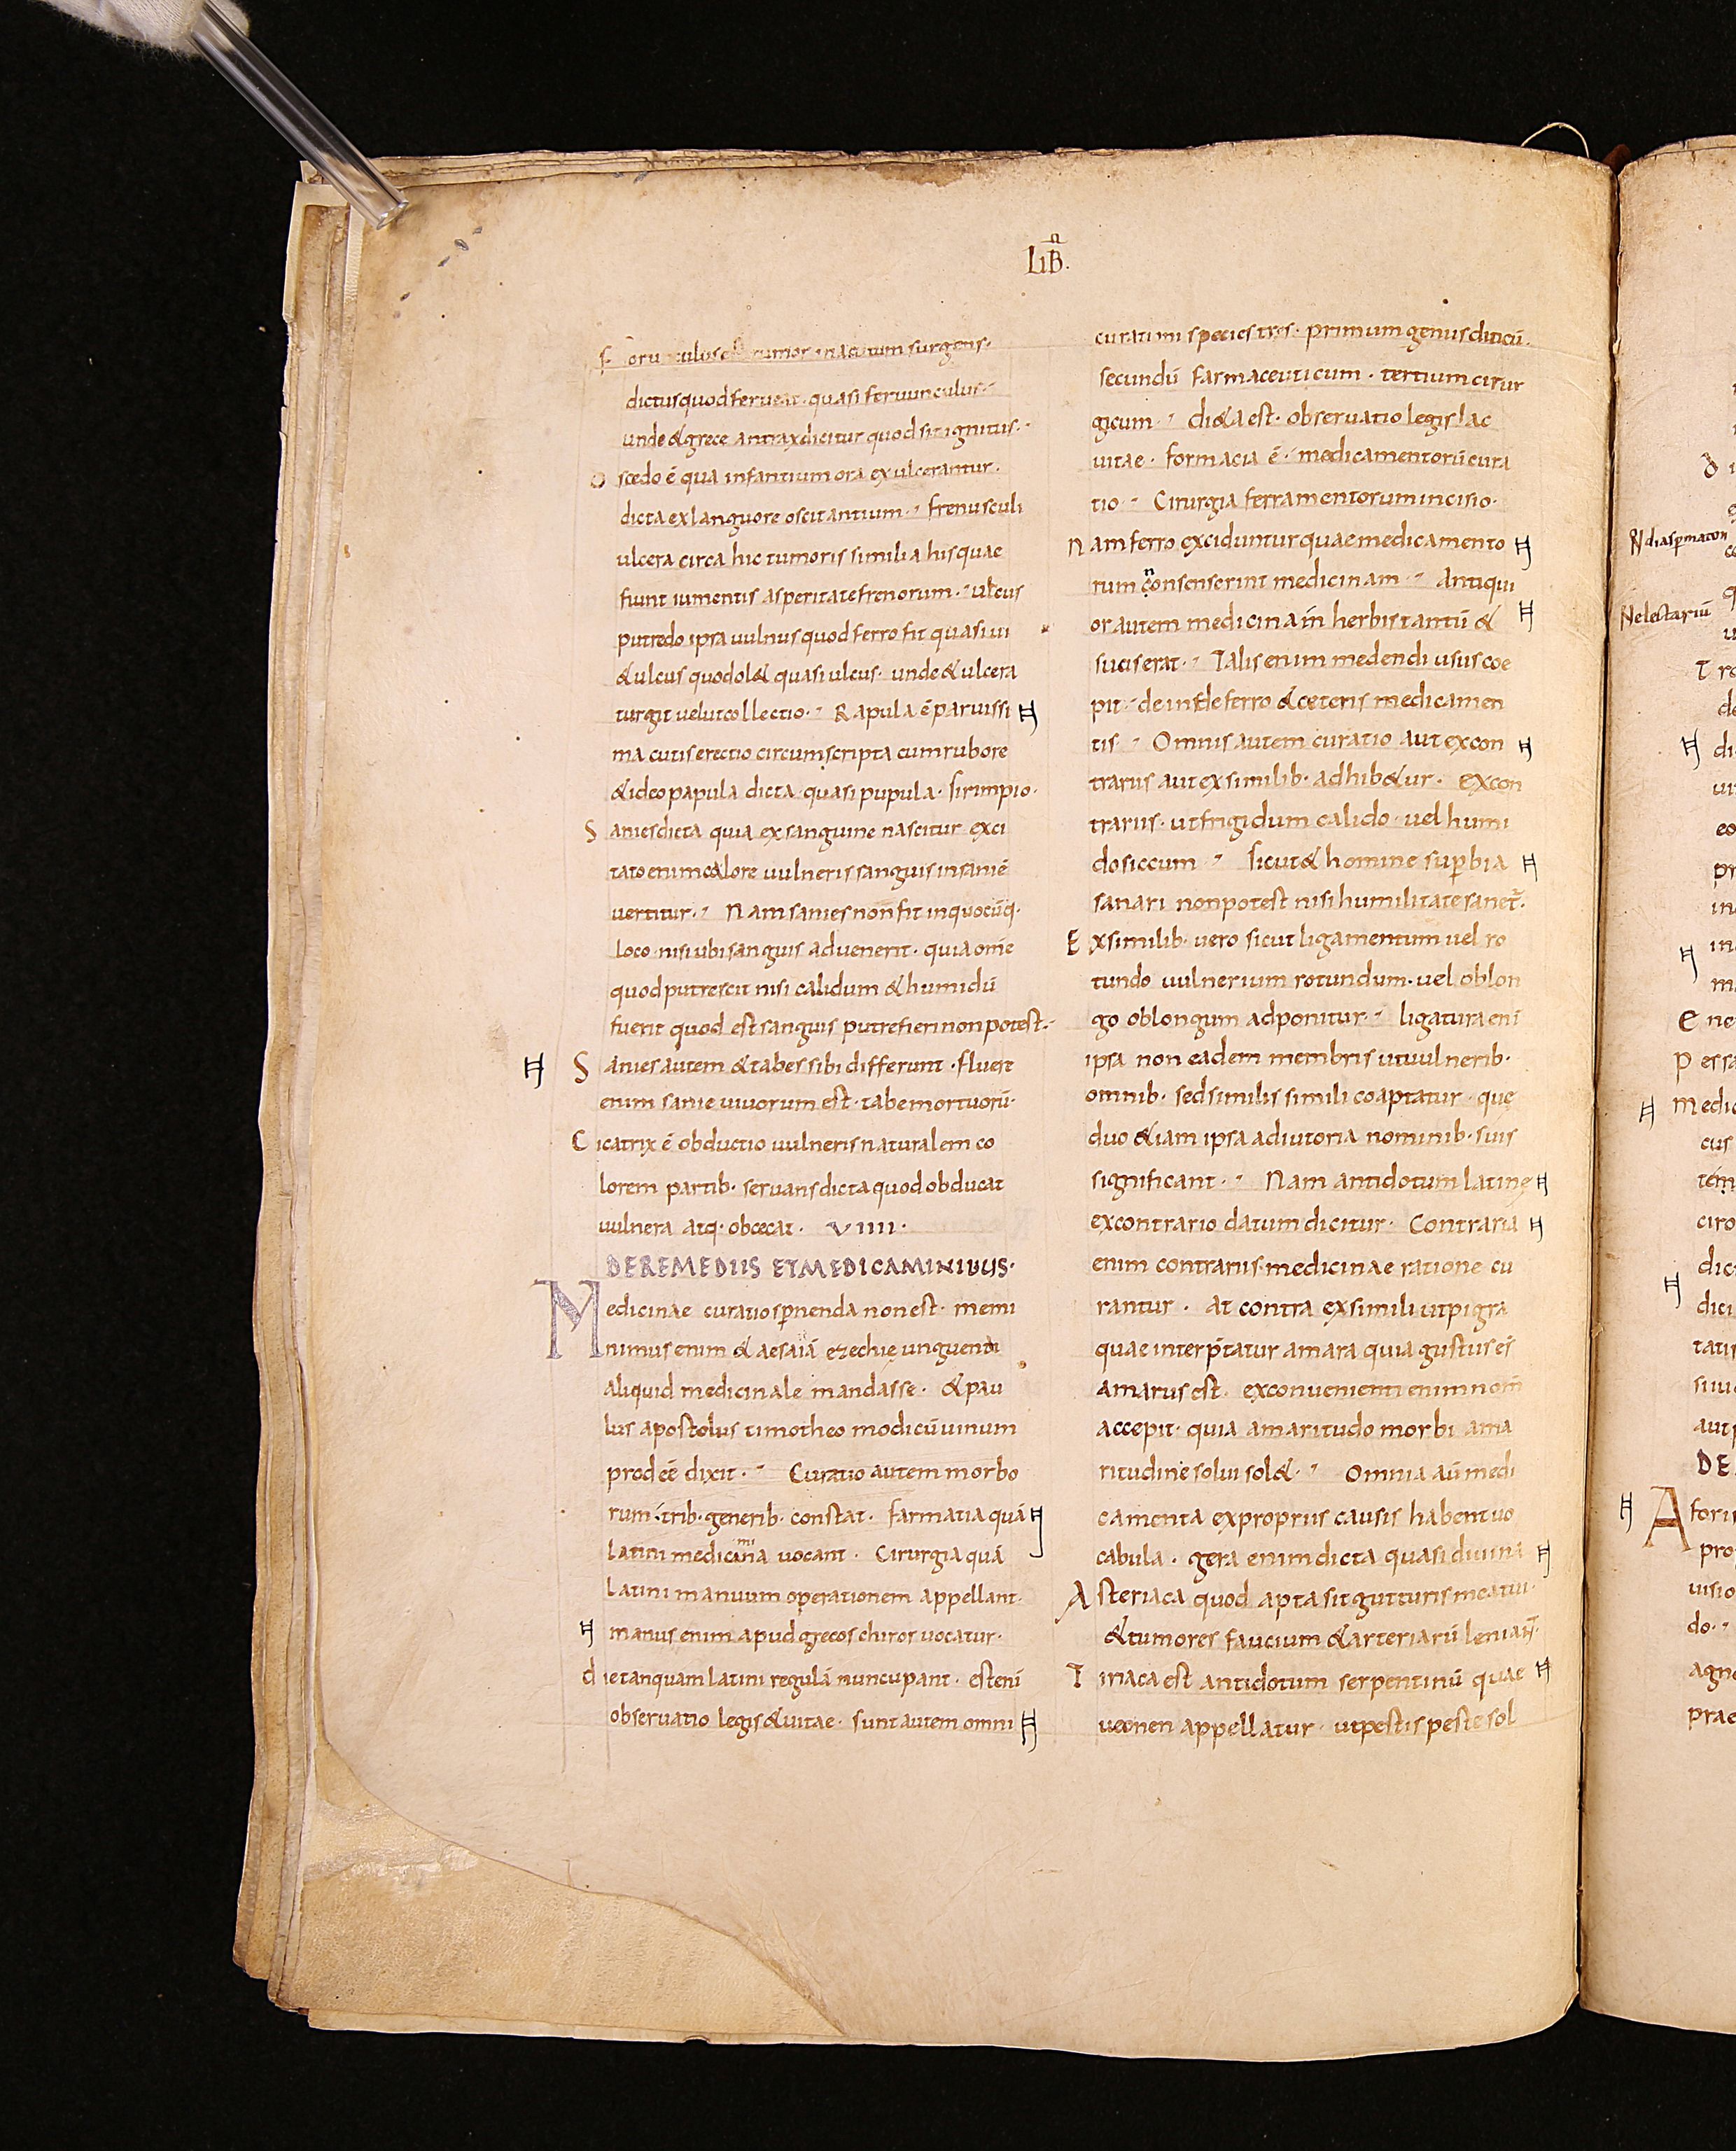 LIB̄.
tumor in acutum surgens·
dictus quod ferueat· quasi feruunculus·
unde & grece antrax dicitur quod sit ignitus·
Oscedo ē qua infantium ora exulcerantur·
dicta ex languore oscitantium· frenusculi
ulcera circa hic tumoris similia his quae
fiunt iumentis asperitate frenorum· ulceus
putredo ipsa uulnus quod ferro fit quasi ui
& ulcus quod ol& quasi ulcus· unde & ulcera
turgit uelut collectio· Rapula ē paruissi
ma cutis erectio circumscripta cum rubore
& ideo papula dicta quasi pupula· sirimpio·
Sanies dicta quia ex sanguine nascitur exci
tato enim calore uulneris sanguis in saniē
uertitur· Nam sanies non fit in quocūq·
loco nisi ubi sanguis aduenerit· quia om̄e
quod putrescit nisi calidum & humidū
fuerit quod est sanguis putrefieri non potest·
Sanies autem & tabes sibi differunt· fluere
enim sanie uiuorum est· tabe mortuorū·
Cicatrix ē obductio uulneris naturalem co
lorem partib· seruans dicta quod obducat
uulnera atq· obcecat· VIIII·
DE REMEDIIS ET MEDICAMINIBUS·
Medicinae curatio sp̄nenda non est· memi
nimus enim & aesaiā ezechię unguenti
aliquid medicinale mandasse· & pau
lus apostolus timotheo modicū uinum
prodeē dixit· Curatio autem morbo
rum trib· generib· constat· farmatia quā
Latini medicina vocant· Cirurgia quā
Latini manuum operationem appellant·
manus enim apud grecos chiros uocatur·
dietanquam latini regulā nuncupant· est enī
obseruatio legis & uitae· sunt autem omni
curationi species tres· primum genus diticū·
secundū farmaceuticum· tertium cirur
gicum· di&a est· obseruatio legis lac
uitae· formacia ē· medicamentorū cura
tio· Cirurgia ferramentorum incisio·
Nam ferro exciduntur quae medicamento
rum n̄ consenserint medicinam· Antiqui
or autem medicina in herbis tantū &
sucis erat· Talis enim medendi usus coe
pit· deinde ferro & ceteris medicamen
tis· Omnis autem curatio aut ex con
trariis aut ex similib· adhib&ur· ex con
trariis· ut frigidum calido· uel humi
do siccum· sicut & homine sup̄bia
sanari non potest nisi humilitate sanet̄·
Ex similib· uero sicut ligamentum uel ro
tundo uulneri um rotundum· uel oblon
go oblongum adponitur· ligatura enī
ipsa non eadem membris ut uulnerib·
omnib· sed similis simili coaptatur· quę
duo &iam ipsa adiutoria nominib· suis
significant· Nam antidotum latine
ex contrario datum dicitur· Contraria
enim contrariis medicinae ratione cu
rantur· at contra ex simili ut pigra
quae interp̄tatur amara quia gustus ei
amarus est· ex conuenienti enim nom̄
accepit· quia amaritudo morbi ama
ritudine solui sol&· Omnia aū medi
camenta ex propriis causis habent uo
cabula· gera enim dicta quasi diuina
Asteriaca quod apta sit gutturis meatui·
& tumores faucium & arteriarū leniat·
Tiriaca est antidotum serpentinū quae
uenen appellatur· ut pestis peste sol
diasp̄maton
electariū